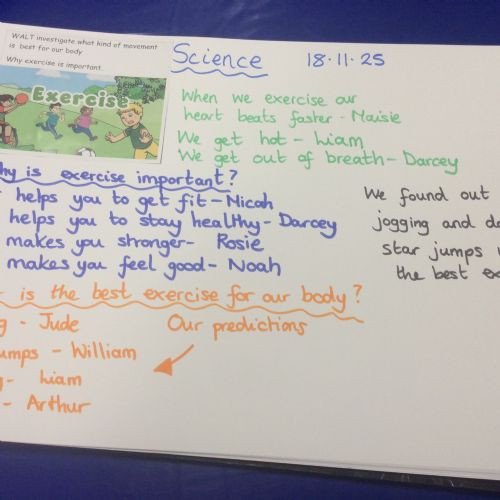 WALT investigate what kind of movement
is best for our body
Why exercise is important.
Exercise
Science 18.11.25
When we exercise our
heart beats faster - Maisie
We get hot - Liam
We get out of breath - Darcey
is exercise important?
helps you to get fit - Nicah
helps you to stay healthy - Darcey
makes you stronger - Rosie
makes you feel good - Noah
We found out
jogging and
star jumps
the best
is the best exercise for our body?
- Jude
Our predictions
- William
- Liam
- Arthur